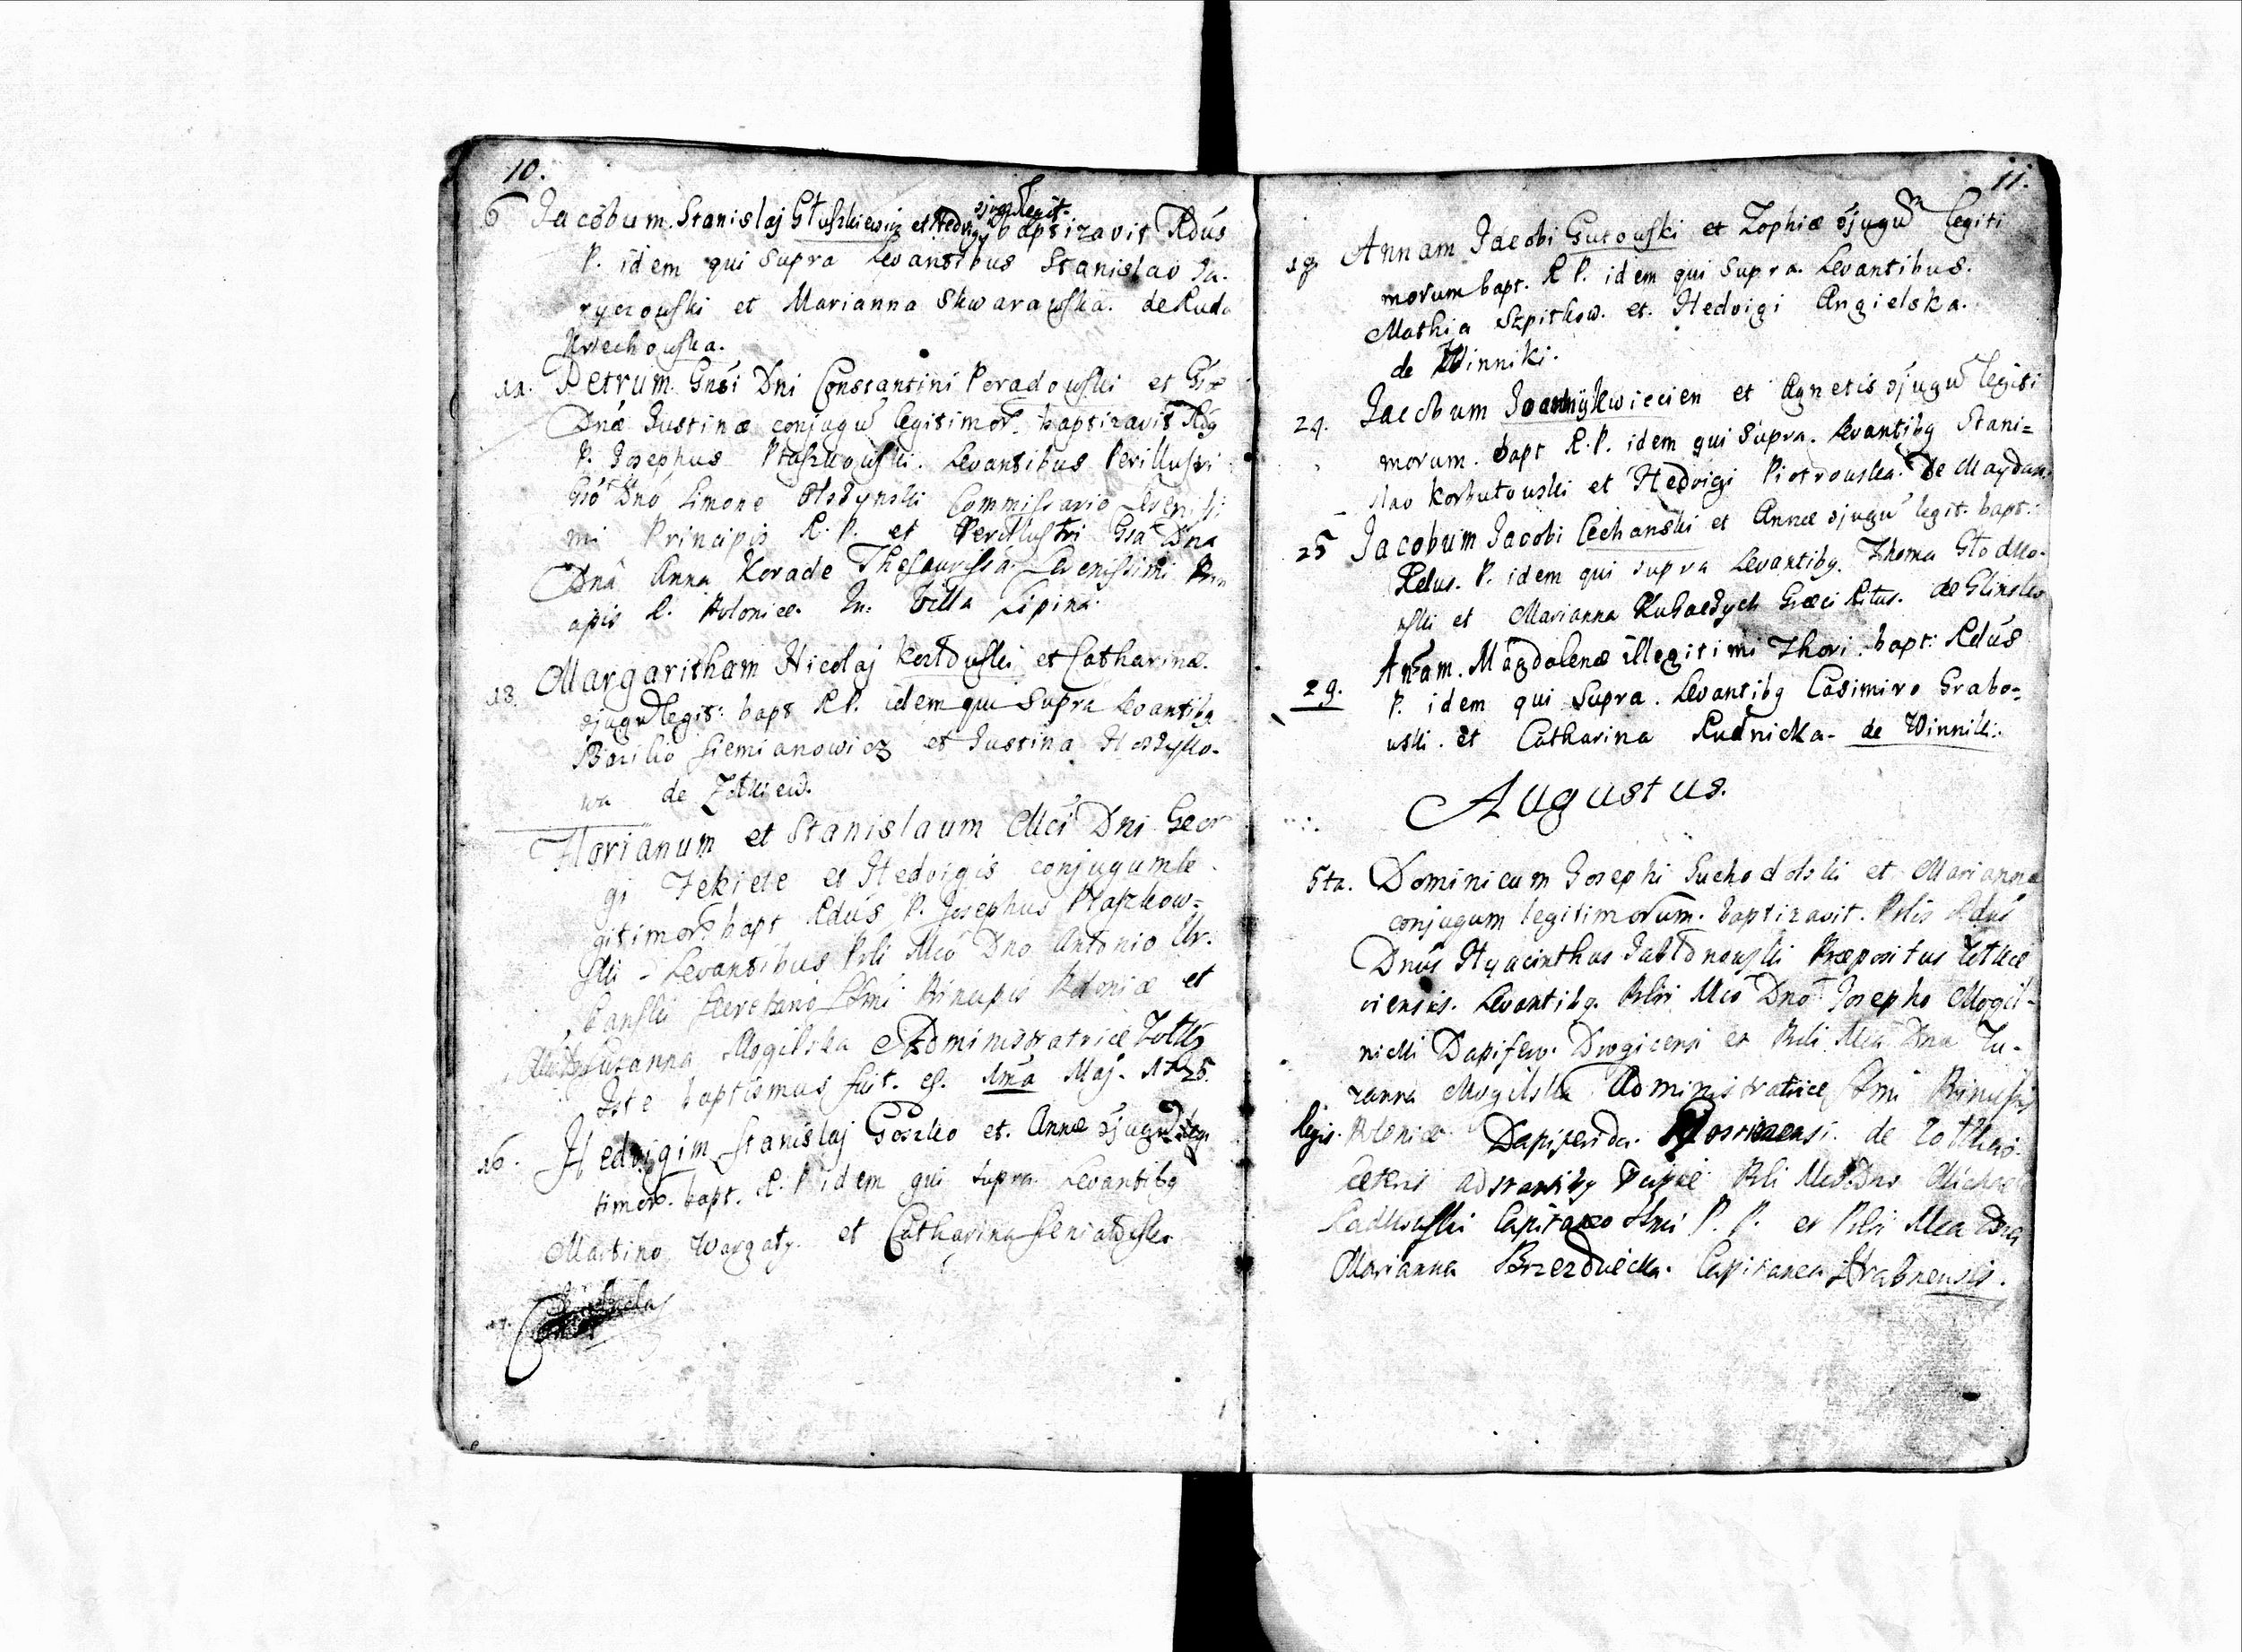 10.
6 Jacobum. Stanislaj Głuszkiewicz et Hedvigis ɔjugũ legit. baptizavit Rdũs
P. idem qui supra Levantibus Stanislao Ja-
ryczowski et Marianna Skwarawska. de Ruda
Krechowska.
11. Petrum. Gnsi Dni Constantini Poradowski et Gsæ
Dnæ Justinæ conjugũ legitimor. baptizavit Rdg
P. Josephus Ptaszkowski. Levantibus Perillustri
Gsõ Dnõ Simone Commissario Serenissi
mi Principis R. P. et Perillustri Gsa Dna
Dnã Anna Korade Thesaurissa Serenissimi Prin
cipis R. Poloniæ. In Villa Lipina.
13. Margaritham Nicolaj et Catharinæ.
ɔjugũ legit: bapt RP. idem qui Supra Levantibg
Bazilio Siemianowicz et Justina
wa de Zołkiew.
Florianum et Stanislaum Mci Dni Geor
gi Fekiete et Hedvigis conjugum le
gitimor. bapt Rdũs P. Josephus Ptaszkow=
ski - Levantibus Prli Mcõ Dno Antonio Ur.
banski Principis Poloniæ et
Zuzanna Mogilska Administratrice Zołk
Iste baptismus fuit. 1ma Maj. 1725.
16. Hedvigim Stanislaj Goszko et. Annæ ɔjugũ legi
timor. bapt. R. P. idem qui supra Levantibg
Martino Wargaty. et Catharina
11.
19. Annam Jacobi Gutowski et Zophiæ ɔjugũ legiti
morum bapt. R P. idem qui supra. Levantibus.
Mathia Szpitkow. et. Hedvigi Angielska.
de Winniki.
24. Jacobum Kwiecien et Agnetis ɔjugũ legiti
morum. bapt R.P. idem qui supra. Levantibg Stani=
slao Korbutowski et Hedvigi Piotrowska. De Maydan.
25 Jacobum Jacobi Cechanski et Annæ ɔjugũ legit. bapt.
Rdus. P. idem qui supra Levantibg. Thoma Głodko-
wski et Marianna Græci Ritus. de Glinsko
29. Annam. Magdalenæ illegitimi Thori. bapt: Rdũs
P. idem qui Supra. Levantibg Casimiro Grabo=
wski. et Catharina Rudnicka- de Winniki.
Augustus.
5ta. Dominicum Josephi Suchodolski et Mariannæ
conjugum legitimorum. baptizavit. Prlis Rdũs
Dnũs Hyacinthus Jabłonowski Præpositus Zołkie
viensis. Levantibg. Prlri Mcõ Dnõ Josepho Mogil-
nicki Dapifero. Drogicensi et Prli Mca Dna Zu-
zanna Mogilska Administratrice Smi Principis
Regis. Poloniæ Dapiferida. de Zołkwi.
Ceteris adstantibg Prli Mcõ. Dno Michae
Capitaneo Smi P. P. et Prlri Mca Dna
Marianna Brzezduicka. Capitanea Hrabnensis.